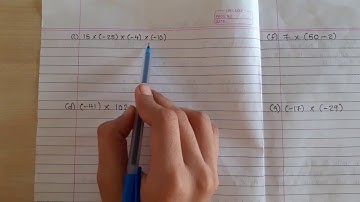 (c) 15 × (-25) × (-4) × (-10)
(f) 7 × (50-2)
(d) (-41) × 102
(g) (-17) × (-29)